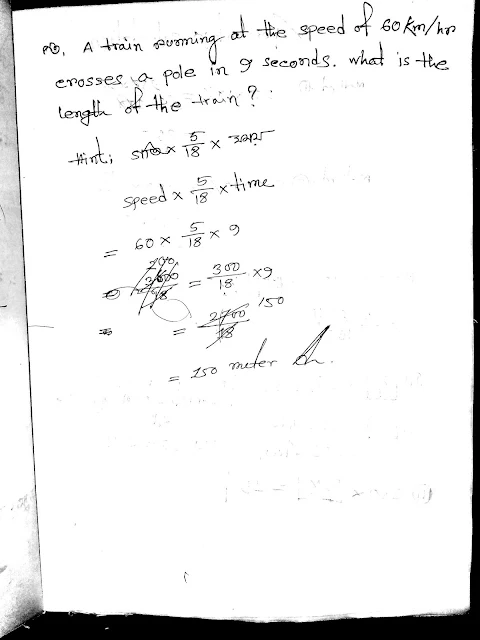 A train running at the speed of 60 km/hr
crosses a pole in 9 seconds. what is the
length of the train?
Hint; × 5/18 ×
speed × 5/18 × time
= 60 × 5/18 × 9
= 300/18 × 9
= 2700/18 150
= 150 meter